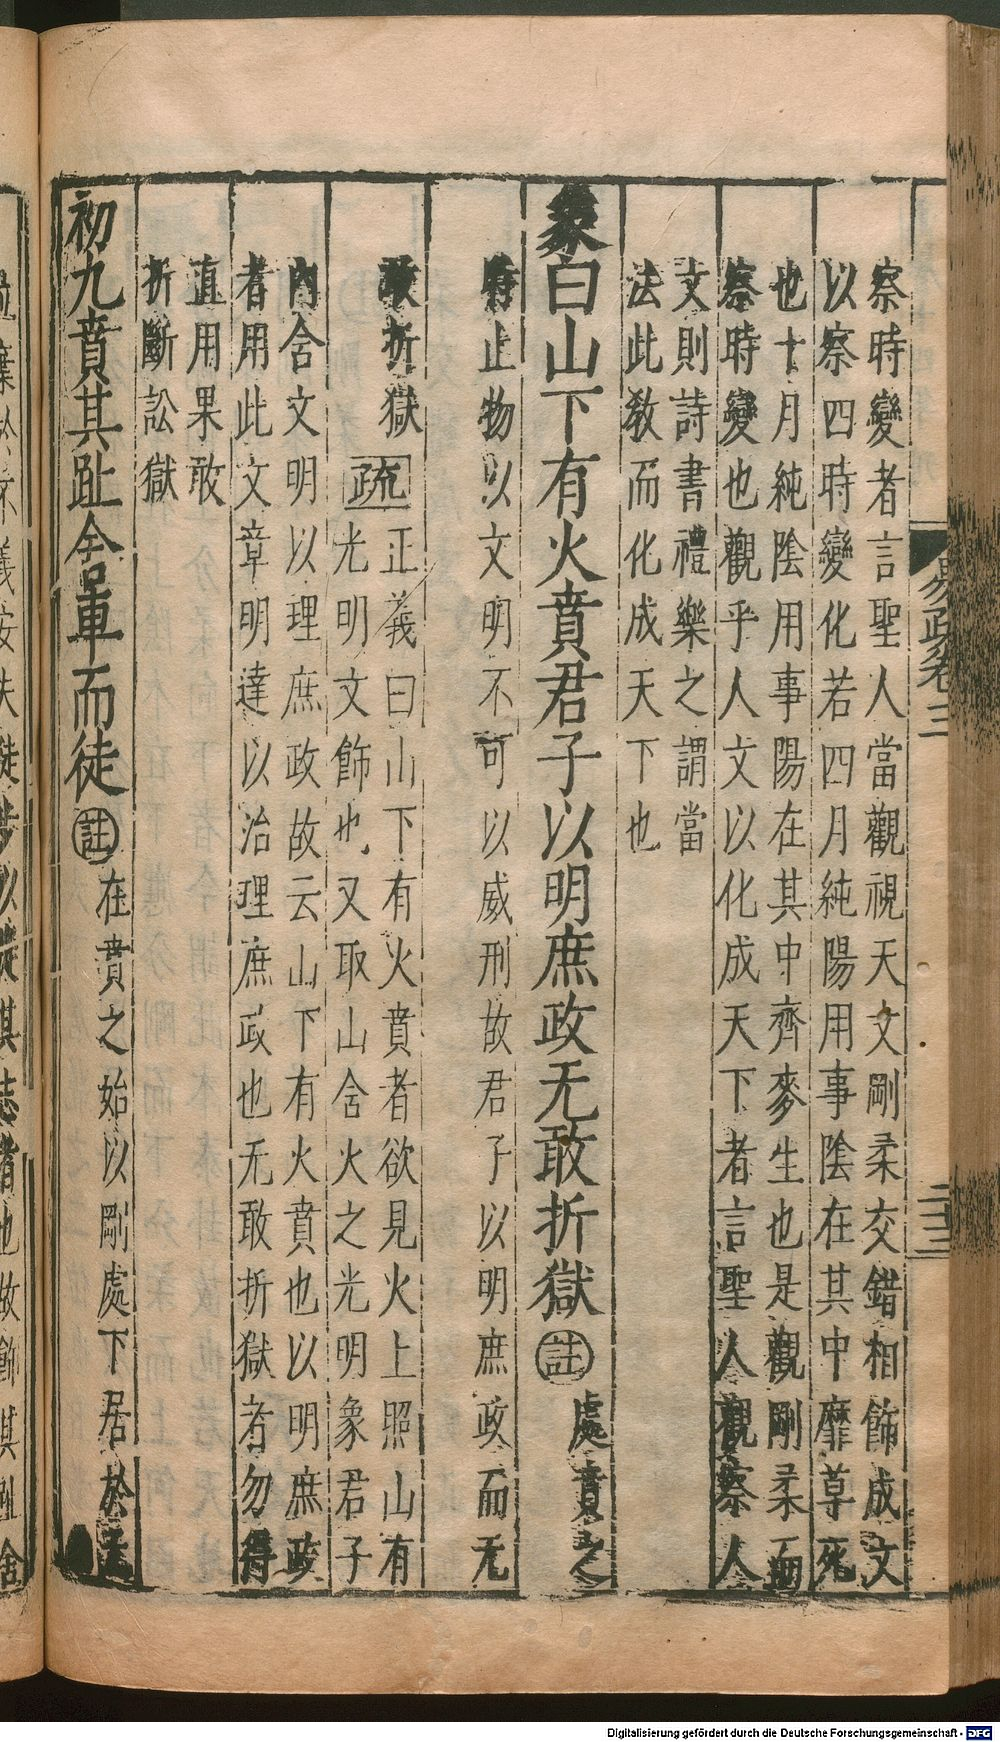 易疏卷三
二十三
察時變者言聖人當觀視天文剛柔交錯相飾成文
以察四時變化若四月純陽用事陰在其中靡草死
也十月純陰用事陽在其中齊麥生也是觀剛柔而
察時變也觀乎人文以化成天下者言聖人觀察人
文則詩書禮樂之謂當
法此敎而化成天下也
象曰山下有火賁君子以明庶政无敢折獄註處賁之
時止物以文明不可以威刑故君子以明庶政而无
敢折獄
疏正義曰山下有火賁者欲見火上照山有
光明文飾也又取山含火之光明象君子
內含文明以理庶政故云山下有火賁也以明庶政
者用此文章明達以治理庶政也无敢折獄者勿得
直用果敢
折斷訟獄
初九賁其趾舍車而徒註在賁之始以剛處下居於无
Digitalisierung gefördert durch die Deutsche Forschungsgemeinschaft - DFG